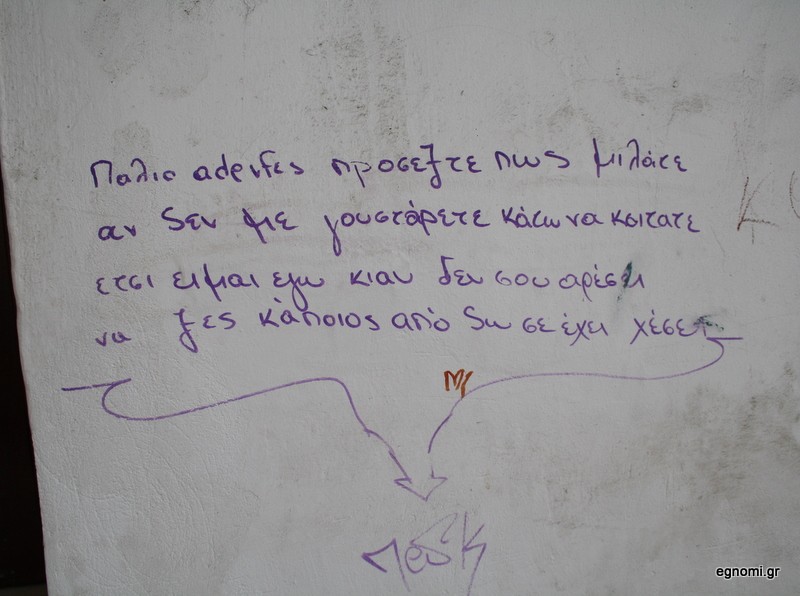 Παλιο adερfες προσεξτε πως μιλάτε
αν δεν με γουστάρετε κάτω να κοιτατε
ετσι ειμαι εγω κι αν δεν σου αρέσει
να ξες κάποιος από δω σε έχει χέσει
egnomi.gr